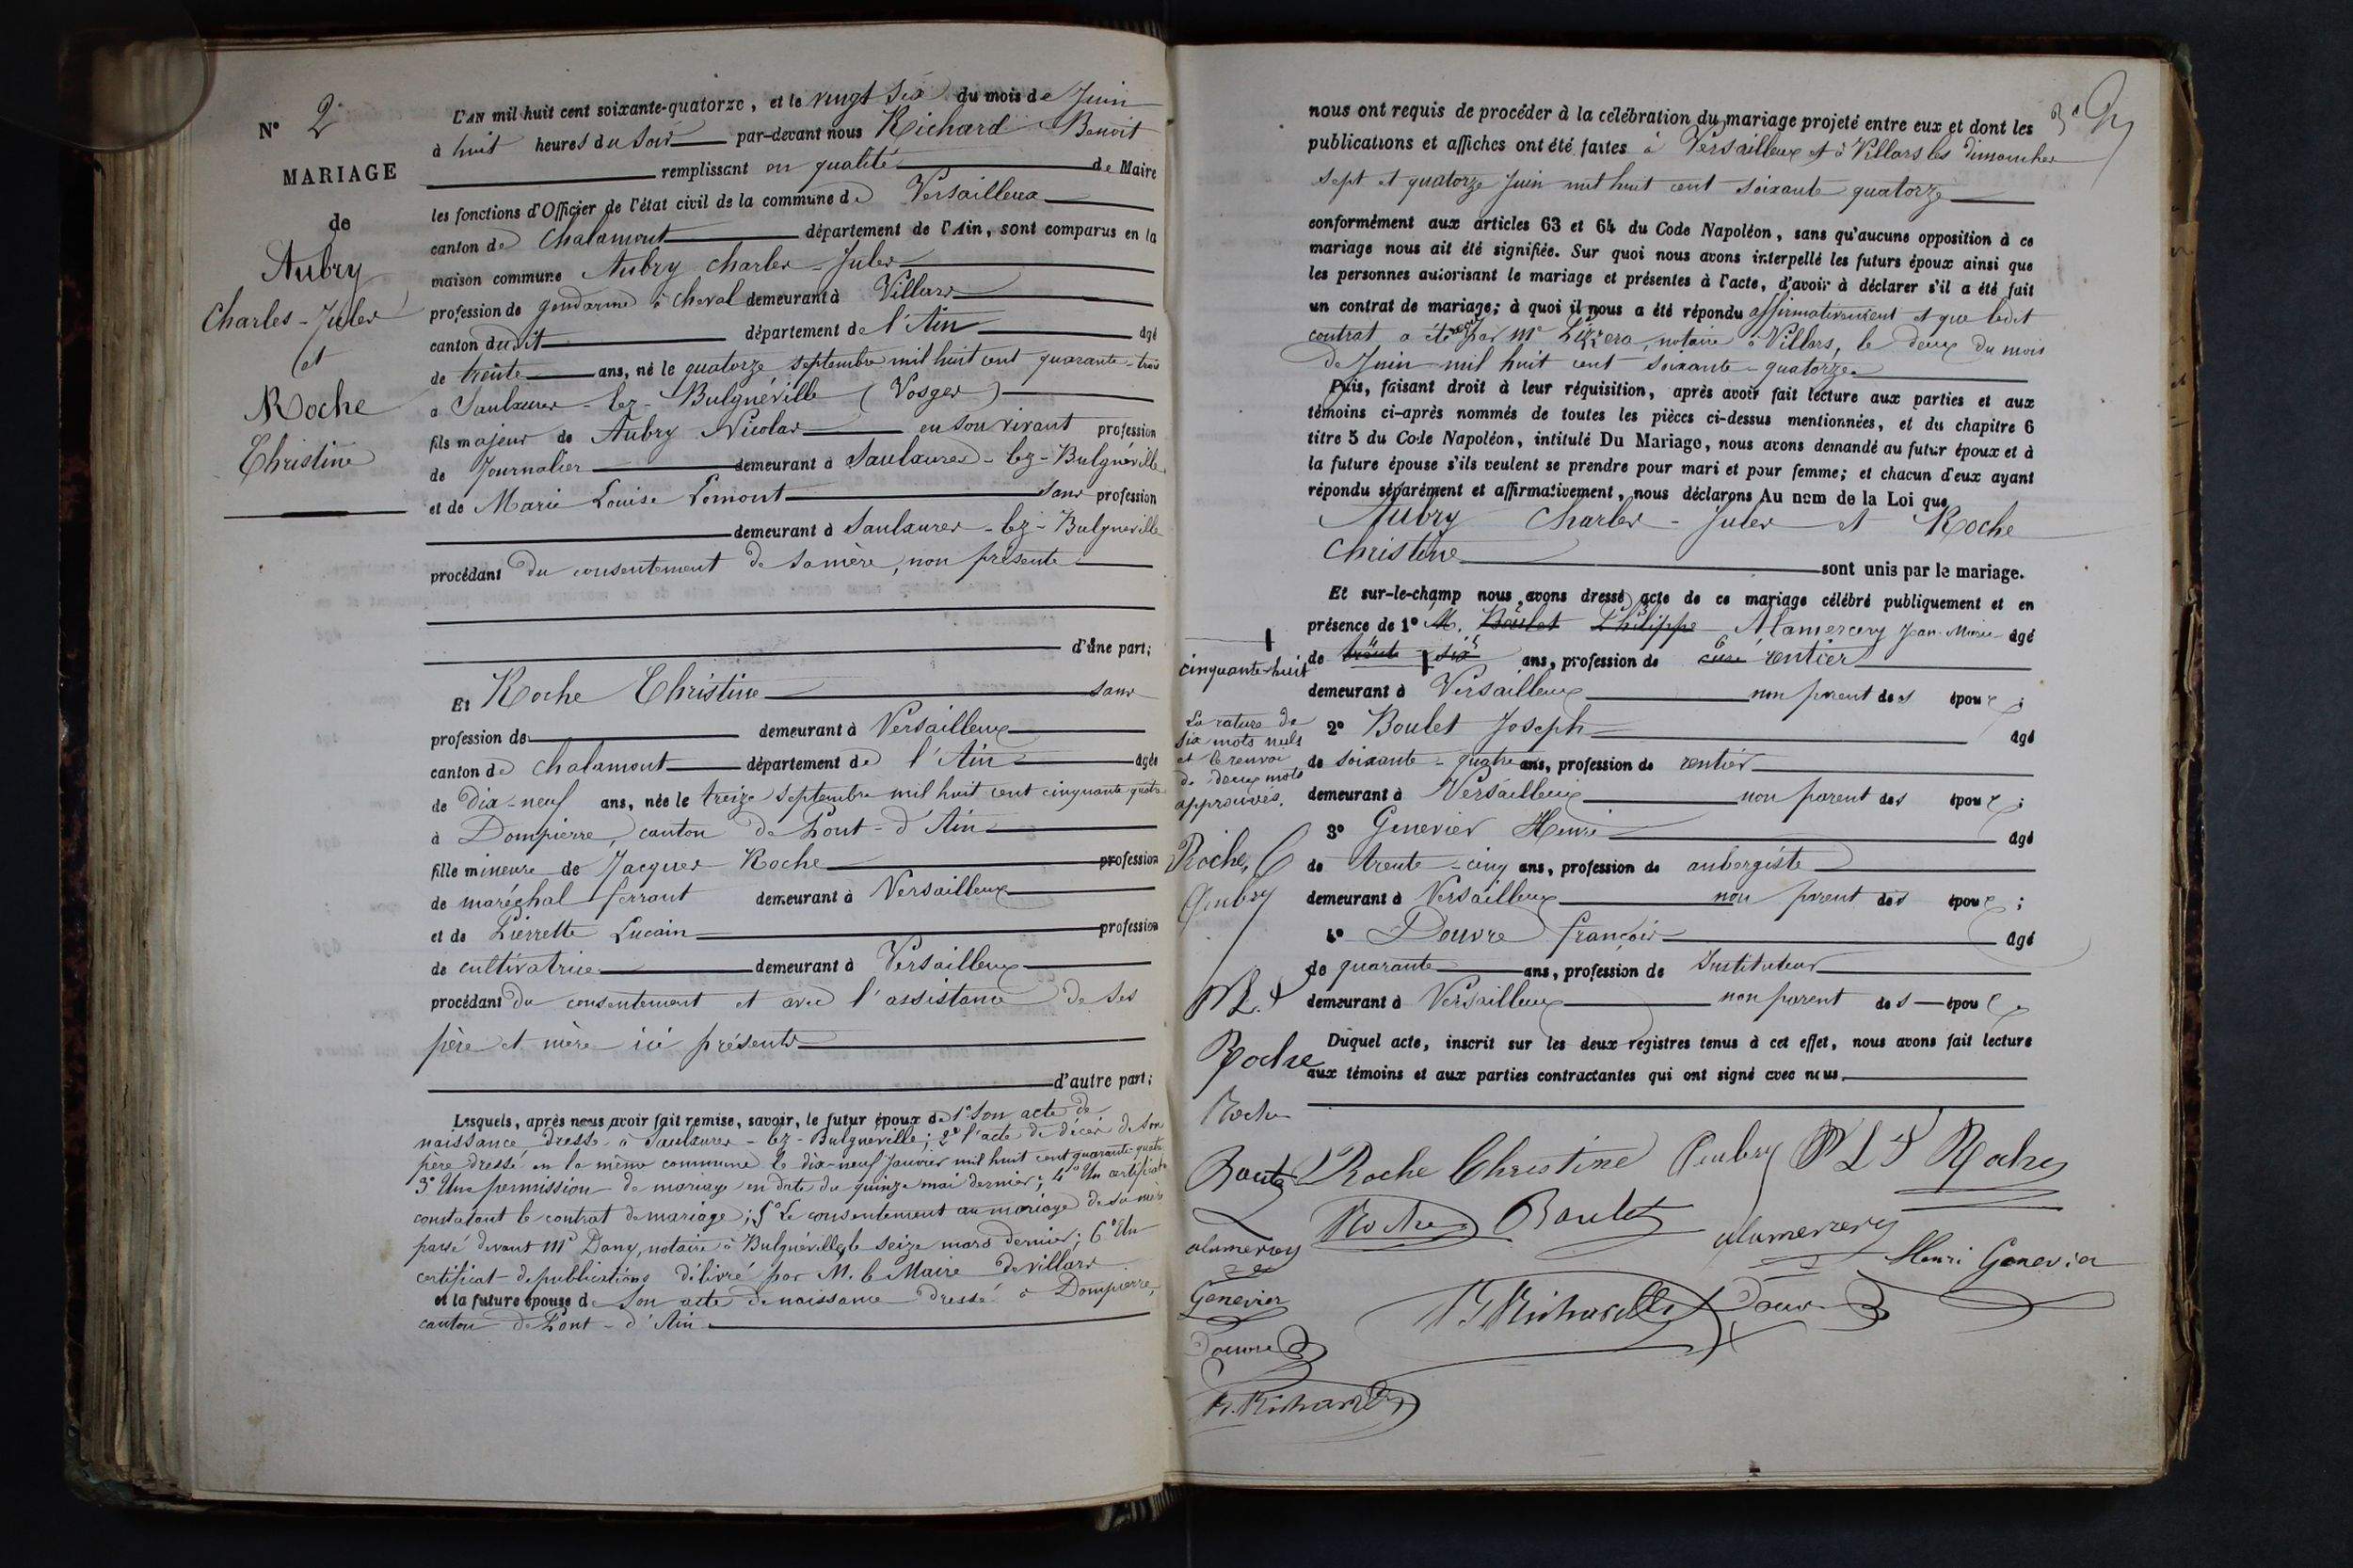 N° 2
MARIAGE
de
Aubry
Charles-Jules
et
Roche
Christine
L'AN mil huit cent soixante-quatorze, et le vingt six du mois de Juin
à huit heures du soir par-devant nous Richard Benoit
remplissant en qualité de Maire
les fonctions d'Officier de l'état civil de la commune de Versailleux
canton de Chalamont département de l'Ain, sont comparus en la
maison commune Aubry Charles-Jules
profession de gendarme à cheval demeurant à Villars
canton dudit département de l'Ain âgé
de trente ans, né le quatorze septembre mil huit cent quarante-trois
à Saulxures-lez-Bulgnéville (Vosges)
fils majeur de Aubry Nicolas en son vivant profession
de Journalier demeurant à Saulxures-lez-Bulgnéville
et de Marie Louise Lemont sans profession
demeurant à Saulxures-lez-Bulgnéville
procédant du consentement de sa mère, non présente
d'une part;
Et Roche Christine sans
profession de demeurant à Versailleux
canton de Chalamont département de l'Ain âgée
de dix-neuf ans, née le treize septembre mil huit cent cinquante quatre
à Dompierre, canton de Pont-d'Ain
fille mineure de Jacques Roche profession
de maréchal ferrant demeurant à Versailleux
et de Pierrette Lucain profession
de cultivatrice demeurant à Versailleux
procédant du consentement et avec l'assistance de ses
père et mère ici présents
d'autre part;
Lesquels, après nous avoir fait remise, savoir, le futur époux de 1° son acte de
naissance dressé à Saulxures-lez-Bulgneville; 2° l'acte de décès de son
père dressé en la même commune le dix-neuf Janvier mil huit cent quarante-quatre
3° Une permission de mariage en date du quinze mai dernier; 4° Un certificat
constatant le contrat de mariage; 5° Le consentement au mariage de sa mère
passé devant Me Dany, notaire à Bulgnéville, le seize mars dernier; 6° Un
certificat de publications délivré par M. le Maire de Villars
et la future épouse de son acte de naissance dressé à Dompierre,
canton de Pont-d'Ain
nous ont requis de procéder à la célébration du mariage projeté entre eux et dont les
publications et affiches ont été faites à Versailleux et à Villars les dimanches
sept et quatorze Juin mil huit cent soixante quatorze
conformément aux articles 63 et 64 du Code Napoléon, sans qu'aucune opposition à ce
mariage nous ait été signifiée. Sur quoi nous avons interpellé les futurs époux ainsi que
les personnes autorisant le mariage et présentes à l'acte, d'avoir à déclarer s'il a été fait
un contrat de mariage; à quoi il nous a été répondu affirmativement et que ledit
contrat a été reçu par Me notaire à Villars, le deux du mois
de Juin mil huit cent soixante-quatorze.
Puis, faisant droit à leur réquisition, après avoir fait lecture aux parties et aux
témoins ci-après nommés de toutes les pièces ci-dessus mentionnées, et du chapitre 6
titre 5 du Code Napoléon, intitulé Du Mariage, nous avons demandé au futur époux et à
la future épouse s'ils veulent se prendre pour mari et pour femme; et chacun d'eux ayant
répondu séparément et affirmativement, nous déclarons Au nom de la Loi que
Aubry Charles-Jules et Roche
Christine
sont unis par le mariage.
Et sur-le-champ nous avons dressé acte de ce mariage célébré publiquement et en
présence de 1° M. Boulet Philippe Alamercery Jean-Marie âgé
de trente-six ans, profession de curé rentier
cinquante-huit
demeurant à Versailleux non parent des époux;
2° Boulet Joseph âgé
de soixante-quatre ans, profession de rentier
demeurant à Versailleux non parent des époux;
3° Genevier Henri âgé
de trente-cinq ans, profession de aubergiste
demeurant à Versailleux non parent des époux;
4° Douvre François âgé
de quarante ans, profession de Instituteur
demeurant à Versailleux non parent des époux.
Duquel acte, inscrit sur les deux registres tenus à cet effet, nous avons fait lecture
aux témoins et aux parties contractantes qui ont signé avec nous.
La rature de
six mots nuls
et le renvoi
de deux mots
approuvés.
Roche, C
Aubry
P L
Roche
Roche
Boulet
alamercery
Genevier
Douvre
B. Richard
Roche Christine Aubry P L Roche
Roche Boulet alamercery
Henri Genevier
B Richard Douvre